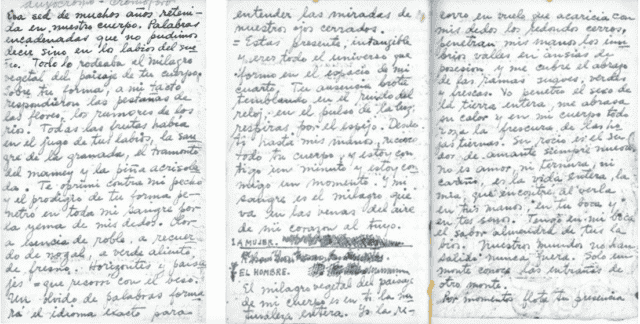 auxocromo - cromóforo
Era sed de muchos años reteni-
da en nuestro cuerpo. Palabras
encadenadas que no pudimos
decir sino en los labios del sue-
ño. Todo lo rodeaba el milagro
vegetal del paisaje de tu cuerpo.
Sobre tu forma, a mi tacto
respondieron las pestañas de
las flores, los rumores de los
ríos. Todas las frutas había
en el jugo de tus labios, la san-
gre de la granada, el tramonto
del mamey y la piña acrisola-
da. Te oprimí contra mi pecho
y el prodigio de tu forma pe-
netró en toda mi sangre por
la yema de mis dedos. Olor
a esencia de roble, a recuer-
do de nogal, a verde aliento
de fresno. Horizontes y paisa-
jes = que recorrí con el beso.
Un olvido de palabras forma-
rá el idioma exacto para
entender las miradas de
nuestros ojos cerrados.
= Estás presente, intangible
y eres todo el universo que
formo en el espacio de mi
cuarto. Tu ausencia brota
temblando en el ruido del
reloj, en el pulso de la luz;
respiras por el espejo. Desde
ti hasta mis manos, recorro
todo tu cuerpo, y estoy con-
tigo un minuto y estoy con-
migo un momento. Y mi
sangre es el milagro que
va en las venas del aire
de mi corazón al tuyo.
LA MUJER.
EL HOMBRE.
El milagro vegetal del paisaje
de mi cuerpo es en ti la na-
turaleza entera. Yo la re-
corro en vuelo que acaricia con
mis dedos los redondos cerros,
penetran mis manos los um-
bríos valles en ansias de
posesión y me cubre el abrazo
de las ramas suaves, verdes
y frescas. Yo penetro el sexo de
la tierra entera, me abrasa
su calor y en mi cuerpo todo
roza la frescura de las ho-
jas tiernas. Su rocío es el su-
dor de amante siempre nuevo.
no es amor, ni ternura, ni
cariño, es la vida entera, la
mía, que encontré al verla
en tus manos, en tu boca y
en tus senos. Tengo en mi boca
el sabor almendra de tus la-
bios. Nuestros mundos no han
salido nunca fuera. Sólo un
monte conoce las entrañas de
otro monte.
Por momentos flota tu presencia